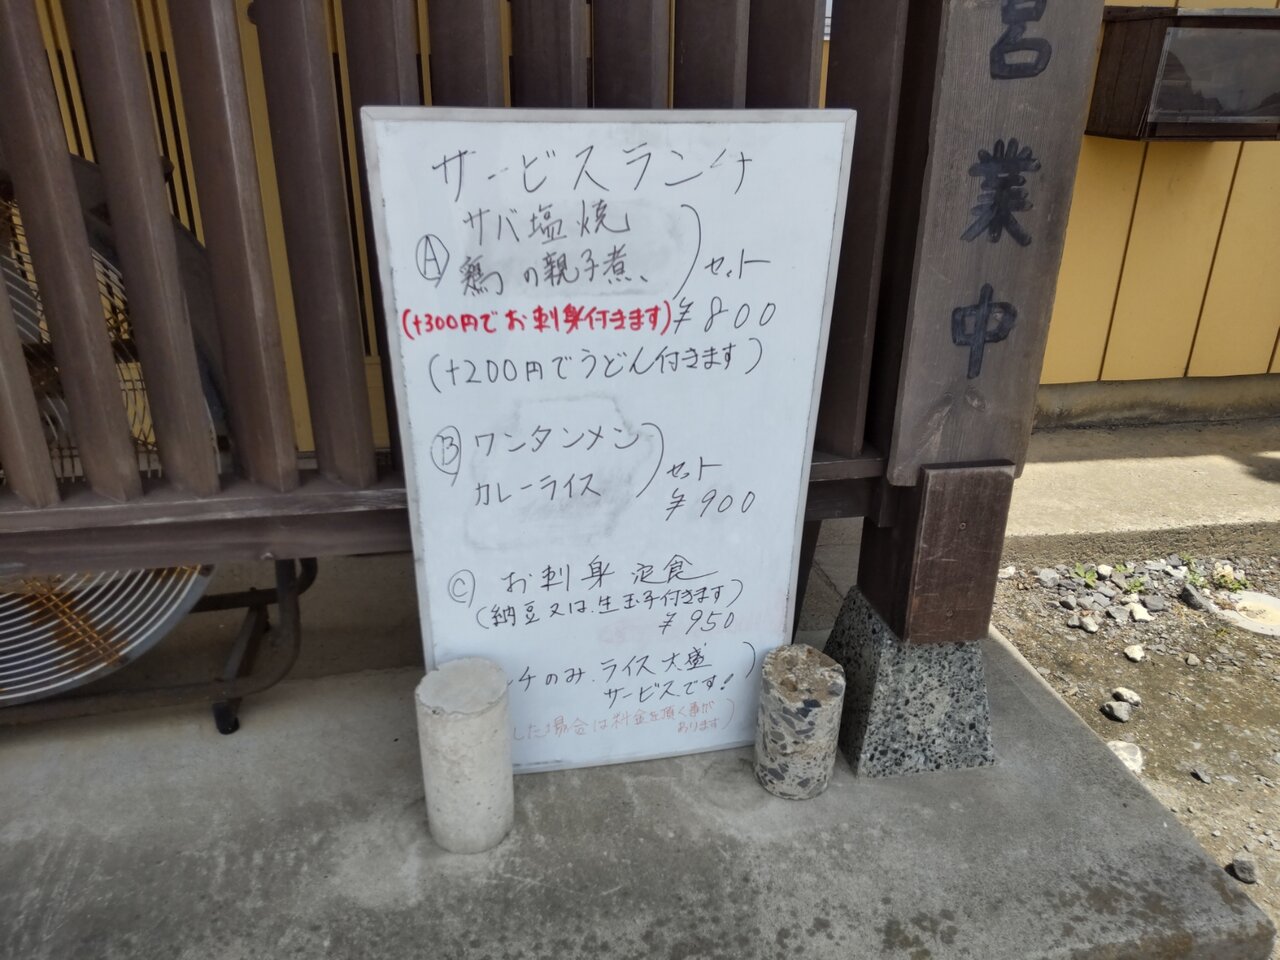 サービスランチ
Ⓐ サバ塩焼
鶏の親子煮、
セット
(+300円でお刺身付きます) ¥800
(+200円でうどん付きます)
Ⓑ ワンタンメン
カレーライス
セット
¥900
Ⓒ お刺身定食
(納豆又は、生玉子付きます)
¥950
ンチのみ、ライス大盛)
サービスです!
した場合は料金を頂く事が
あります)
営業中